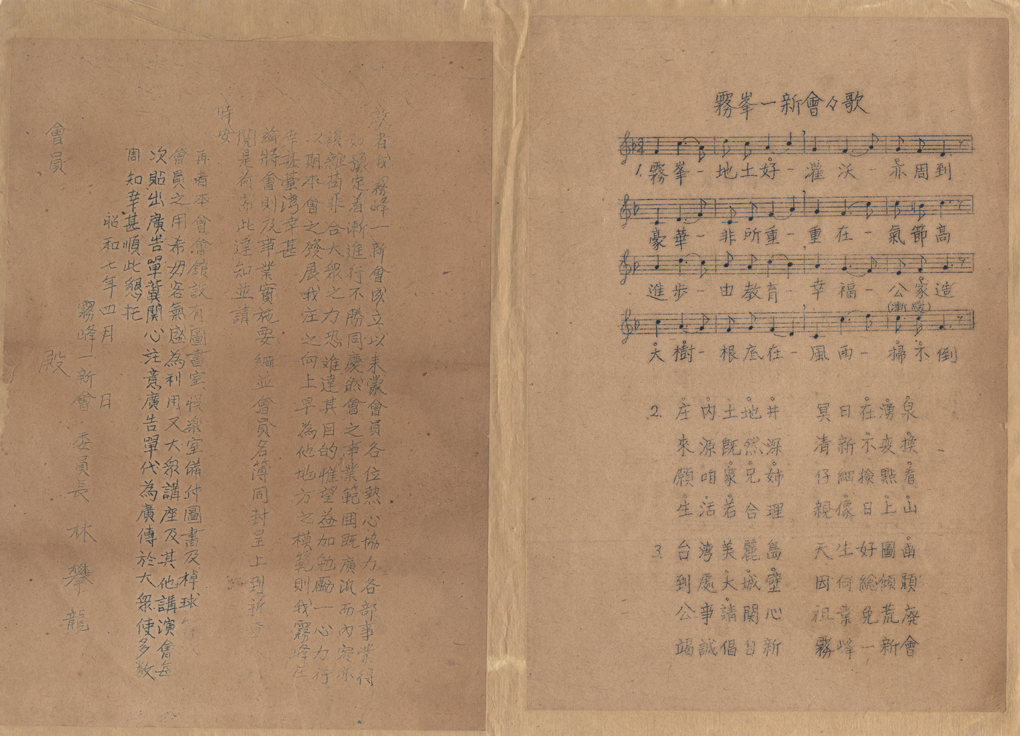 霧峰一新會成立以來蒙會員各位熱心協力各部事業得
擬定着漸進行不勝同慶然會之事業範囲既廣汎而內容亦
雜苟非合大衆之力恐難達其目的惟望益加勉勵一心力行
以期本會之發展我庄之向上早為他地方之模範則我霧峰庄
幸甚臺灣幸甚
將會則及事業實施要綱並會員名薄同封呈上到祈查
閱是荷耑此達知並請
時安
再者本會會館設有圖書室娛楽室備付圖書及棹球等
會員之用希毋客氣盛為利用又大衆講座及其他講演會每
次貼出廣告單冀関心注意廣告單代為廣傳於大衆使多数
周知幸甚順此懇托
昭和七年四月 日
霧峰一新會 委員長 林攀龍
會員 殿
霧峯一新會々歌
1. 霧峯-地土好-灌沃-亦周到
豪華-非所重-重在-氣節高
進步-由教育-幸福-公家造
(漸緩)
大樹-根底在-風雨-搖不倒
2. 庄內土地井 冥日在湧泉
來源既然深 清新不衰換
願咱眾兄姉 仔細撿點看
生活若合理 親像日上山
3. 台湾美麗島 天生好圖画
到處大城壁 因何総傾頽
公事請関心 祖業免荒廢
竭誠倡自新 霧峰一新會